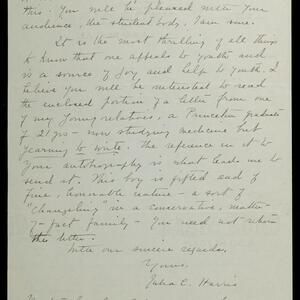 this. You will be pleased with your
audience, the student body, I am sure.
It is the most thrilling of all things
to know that one appeals to youth and
is a source of joy and help to youth. I
believe you will be interested to read
the enclosed portion of a letter from one
of my young relatives, a Princeton graduate
of 21 yrs - now studying medicine but
yearning to write. The reference in it to
your autobiography is what leads me to
send it. This boy is gifted and of
fine, honorable nature - a sort of
"changeling" in a conservative, matter-
of-fact family - You need not return
the letter.
With our sincere regards,
Yours,
Julia C. Harris